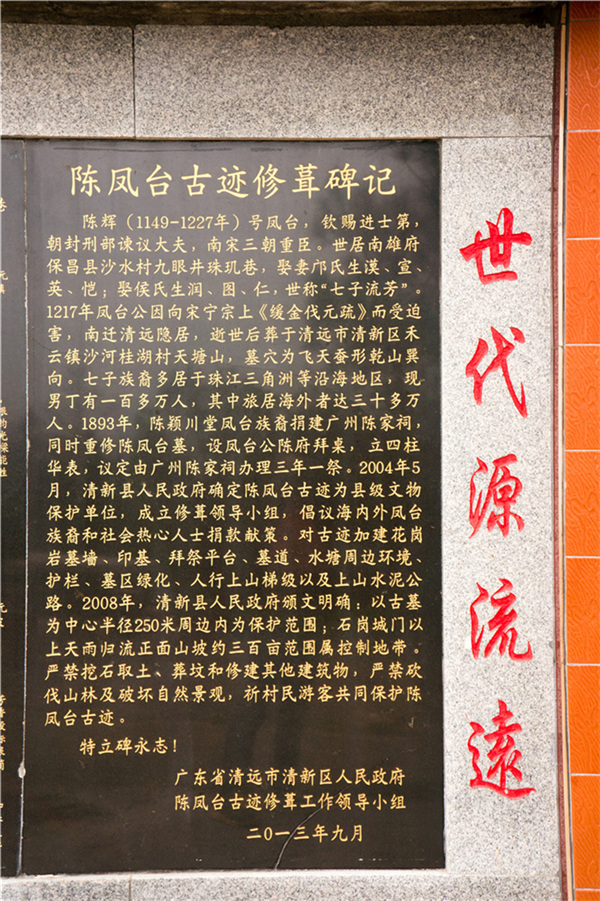 陈凤台古迹修葺碑记
陈辉（1149-1227年）号凤台，钦赐进士第，
朝封刑部谏议大夫，南宋三朝重臣。世居南雄府
保昌县沙水村九眼井珠玑巷，娶妻邝氏生漠、宣、
英、恺；娶侯氏生润、图、仁，世称“七子流芳”。
1217年凤台公因向宋宁宗上《缓金伐元疏》而受迫
害，南迁清远隐居，逝世后葬于清远市清新区禾
云镇沙河桂湖村天塘山，墓穴为飞天蚕形乾山巽
向。七子族裔多居于珠江三角洲等沿海地区，现
男丁有一百多万人，其中旅居海外者达三十多万
人。1893年，陈颍川堂凤台族裔捐建广州陈家祠，
同时重修陈凤台墓，设凤台公陈府拜桌，立四柱
华表，议定由广州陈家祠办理三年一祭。2004年5
月，清新县人民政府确定陈凤台古迹为县级文物
保护单位，成立修葺领导小组，倡议海内外凤台
族裔和社会热心人士捐款献策。对古迹加建花岗
岩墓墙、印基、拜祭平台、墓道、水塘周边环境、
护栏、墓区绿化、人行上山梯级以及上山水泥公
路。2008年，清新县人民政府颁文明确：以古墓
为中心半径250米周边内为保护范围；石岗城门以
上天雨归流正面山坡约三百亩范围属控制地带。
严禁挖石取土、葬坟和修建其他建筑物，严禁砍
伐山林及破坏自然景观，祈村民游客共同保护陈
凤台古迹。
特立碑永志！
广东省清远市清新区人民政府
陈凤台古迹修葺工作领导小组
二〇一三年九月
世代源流远